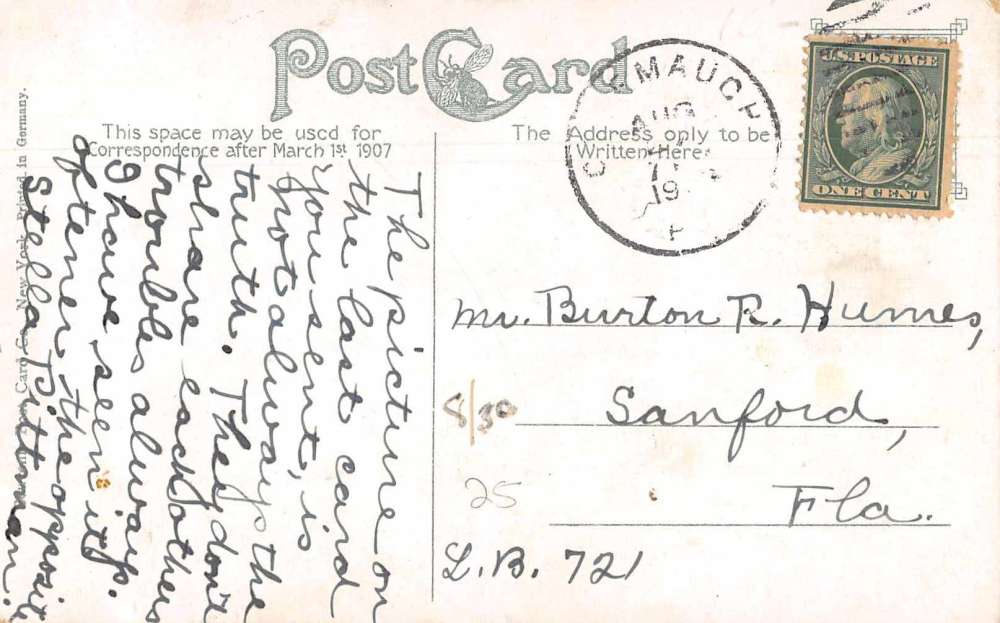 Post Card
This space may be used for
Correspondence after March 1st 1907
The Address only to be
Written Here
MAUCH
AUG
19
U.S. POSTAGE
ONE CENT
The picture on
the last card
you sent, is
not always the
truth. They don't
share each others
troubles always.
I have seen it
oftener the opposite
Stella Pittman.
Mr. Burton R. Humes,
Sanford,
Fla.
L.B. 721
8/30
25
Card Co., New York. Printed in Germany.